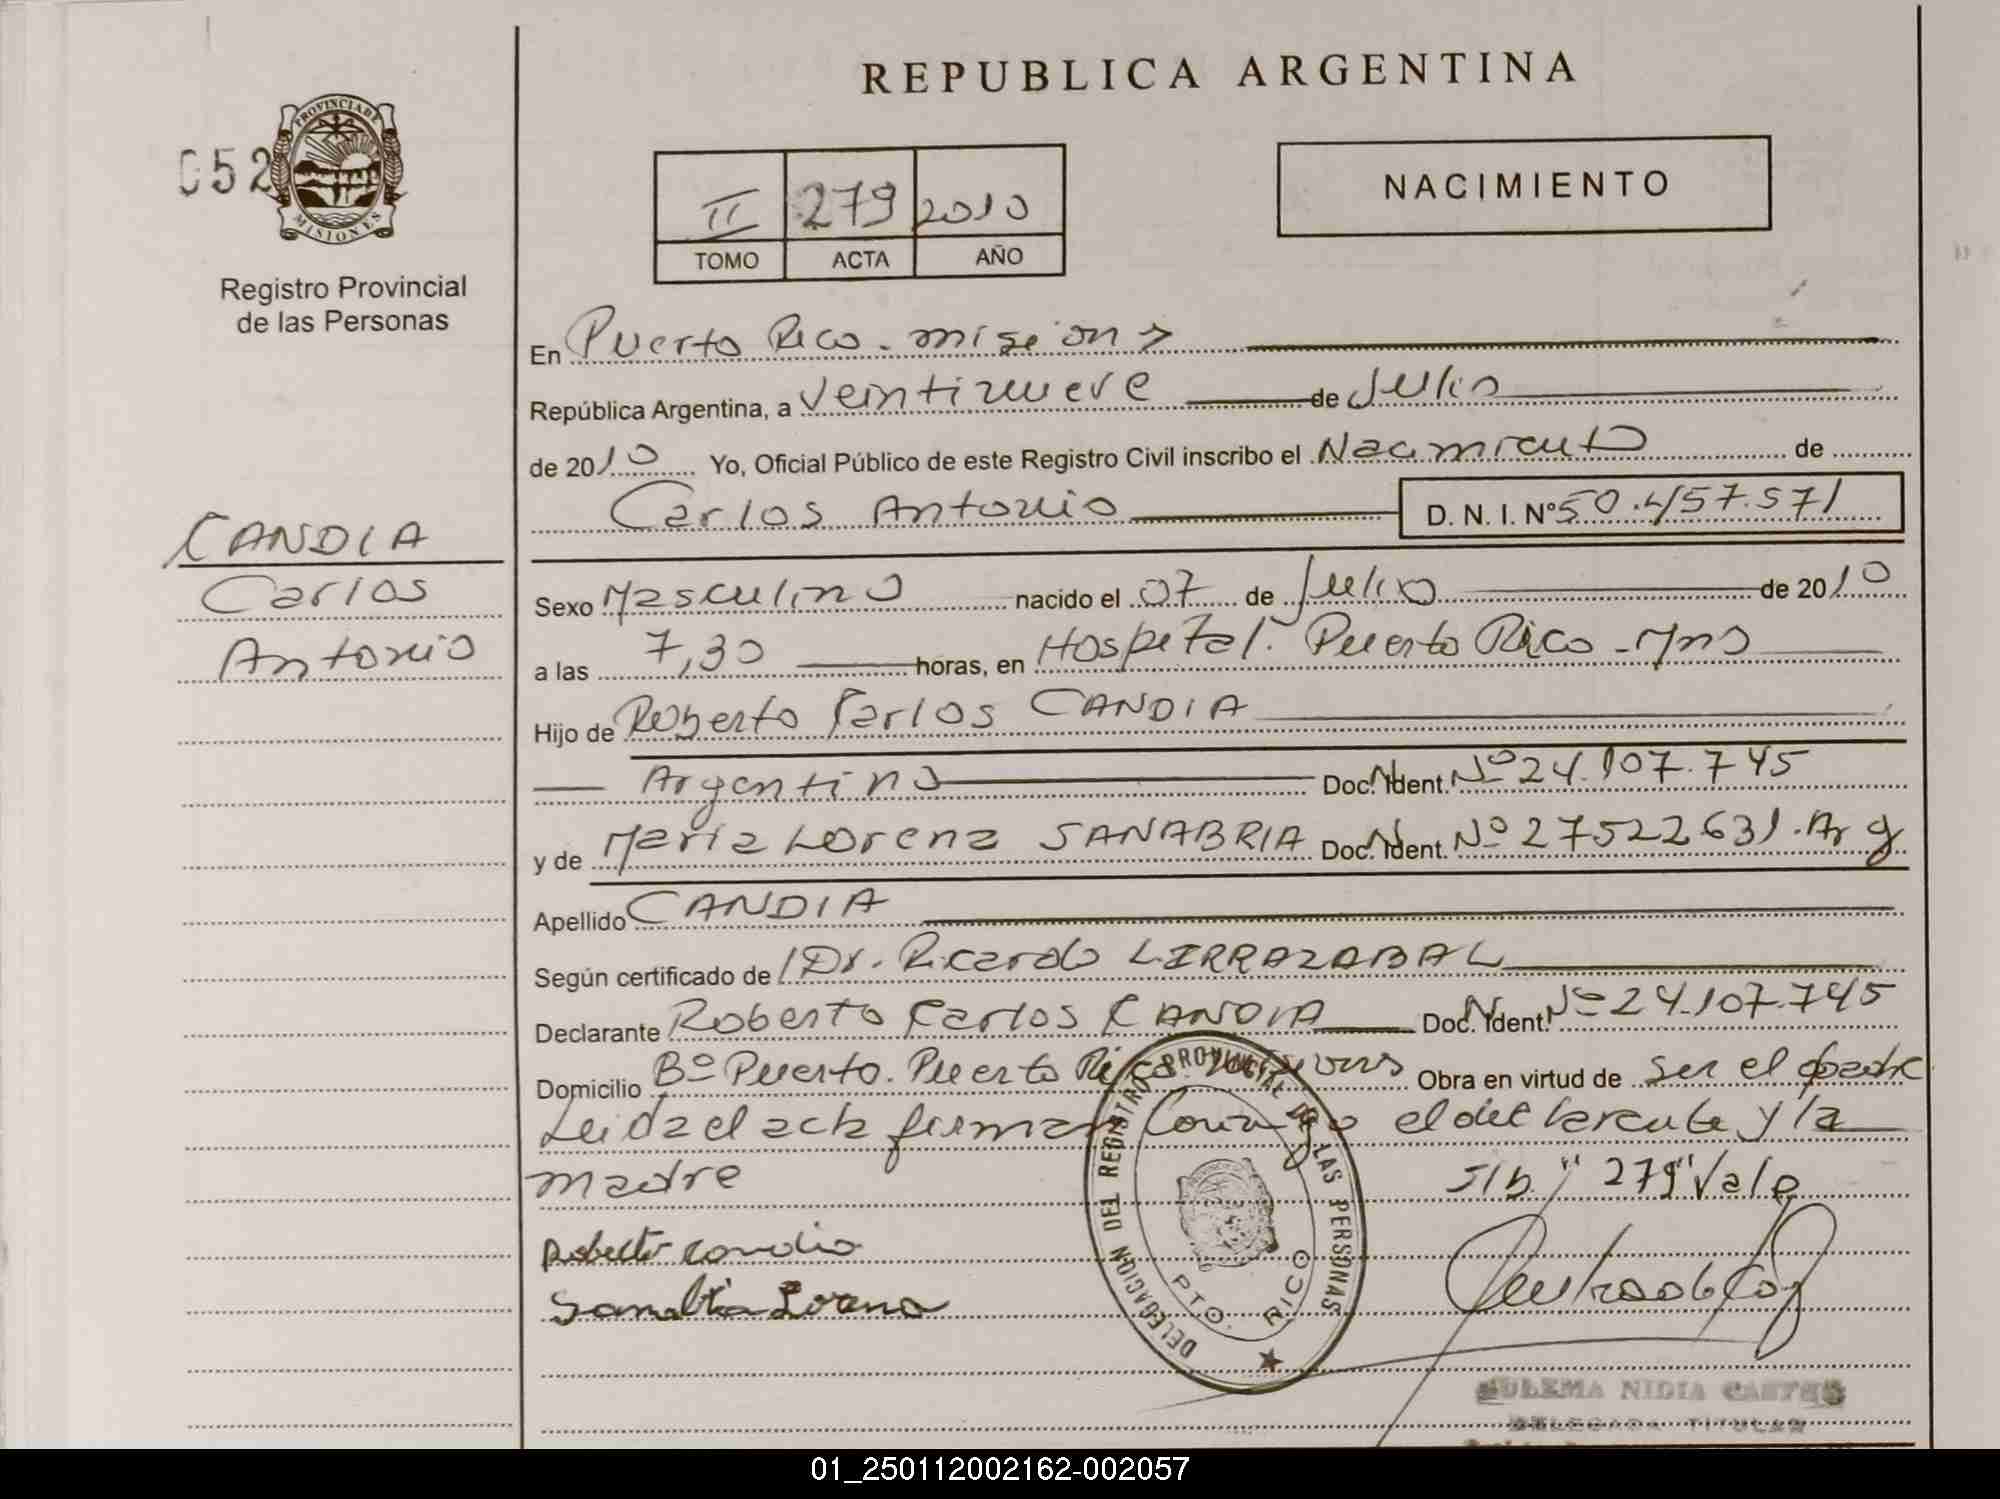 REPUBLICA ARGENTINA
052
PROVINCIA DE
MISIONES
Registro Provincial
de las Personas
II 279 2010
TOMO ACTA AÑO
NACIMIENTO
En Puerto Rico - misiones
República Argentina, a veintinueve de Julio
de 2010 Yo, Oficial Público de este Registro Civil inscribo el Nacimiento de
Carlos Antonio D. N. I. Nº 50.457.571
CANDIA
Carlos
Antonio
Sexo Masculino nacido el 07 de Julio de 2010
a las 7,30 horas, en Hospital. Puerto Rico - Mns
Hijo de Roberto Carlos CANDIA
Argentino Doc. Ident. Nº 24.107.745
y de María Lorena SANABRIA Doc. Ident. Nº 27522631. Arg
Apellido CANDIA
Según certificado de Dr. Ricardo LIRRAZABAL
Declarante Roberto Carlos CANDIA Doc. Ident. Nº 24.107.745
Domicilio Bº Puerto. Puerto Rico Misiones Obra en virtud de ser el padre
Leida el acta firman conmigo el declarante y la
madre S/b "279" Vale
Roberto Candia
Sanabria Lorena
DELEGACION DEL REGISTRO PROVINCIAL DE LAS PERSONAS
PTO. RICO
ZULEMA NIDIA CASTRO
DELEGADA TITULAR
01_250112002162-002057